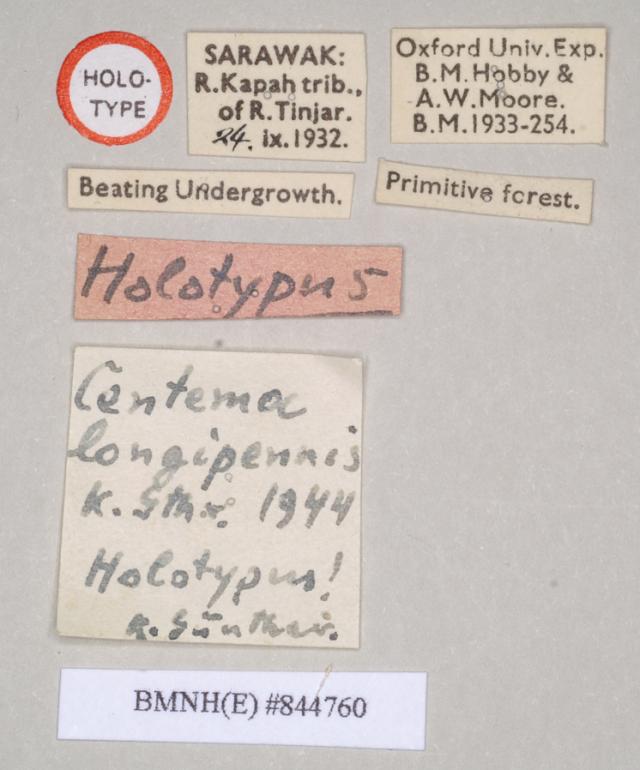 HOLO-
TYPE
SARAWAK:
R.Kapah trib.,
of R.Tinjar.
24. ix.1932.
Oxford Univ. Exp.
B.M.Hobby &
A.W.Moore.
B.M.1933-254.
Beating Undergrowth.
Primitive forest.
Holotypus
Centema
longipennis
K. Gthr. 1944
Holotypus!
K. Günther.
BMNH(E) #844760